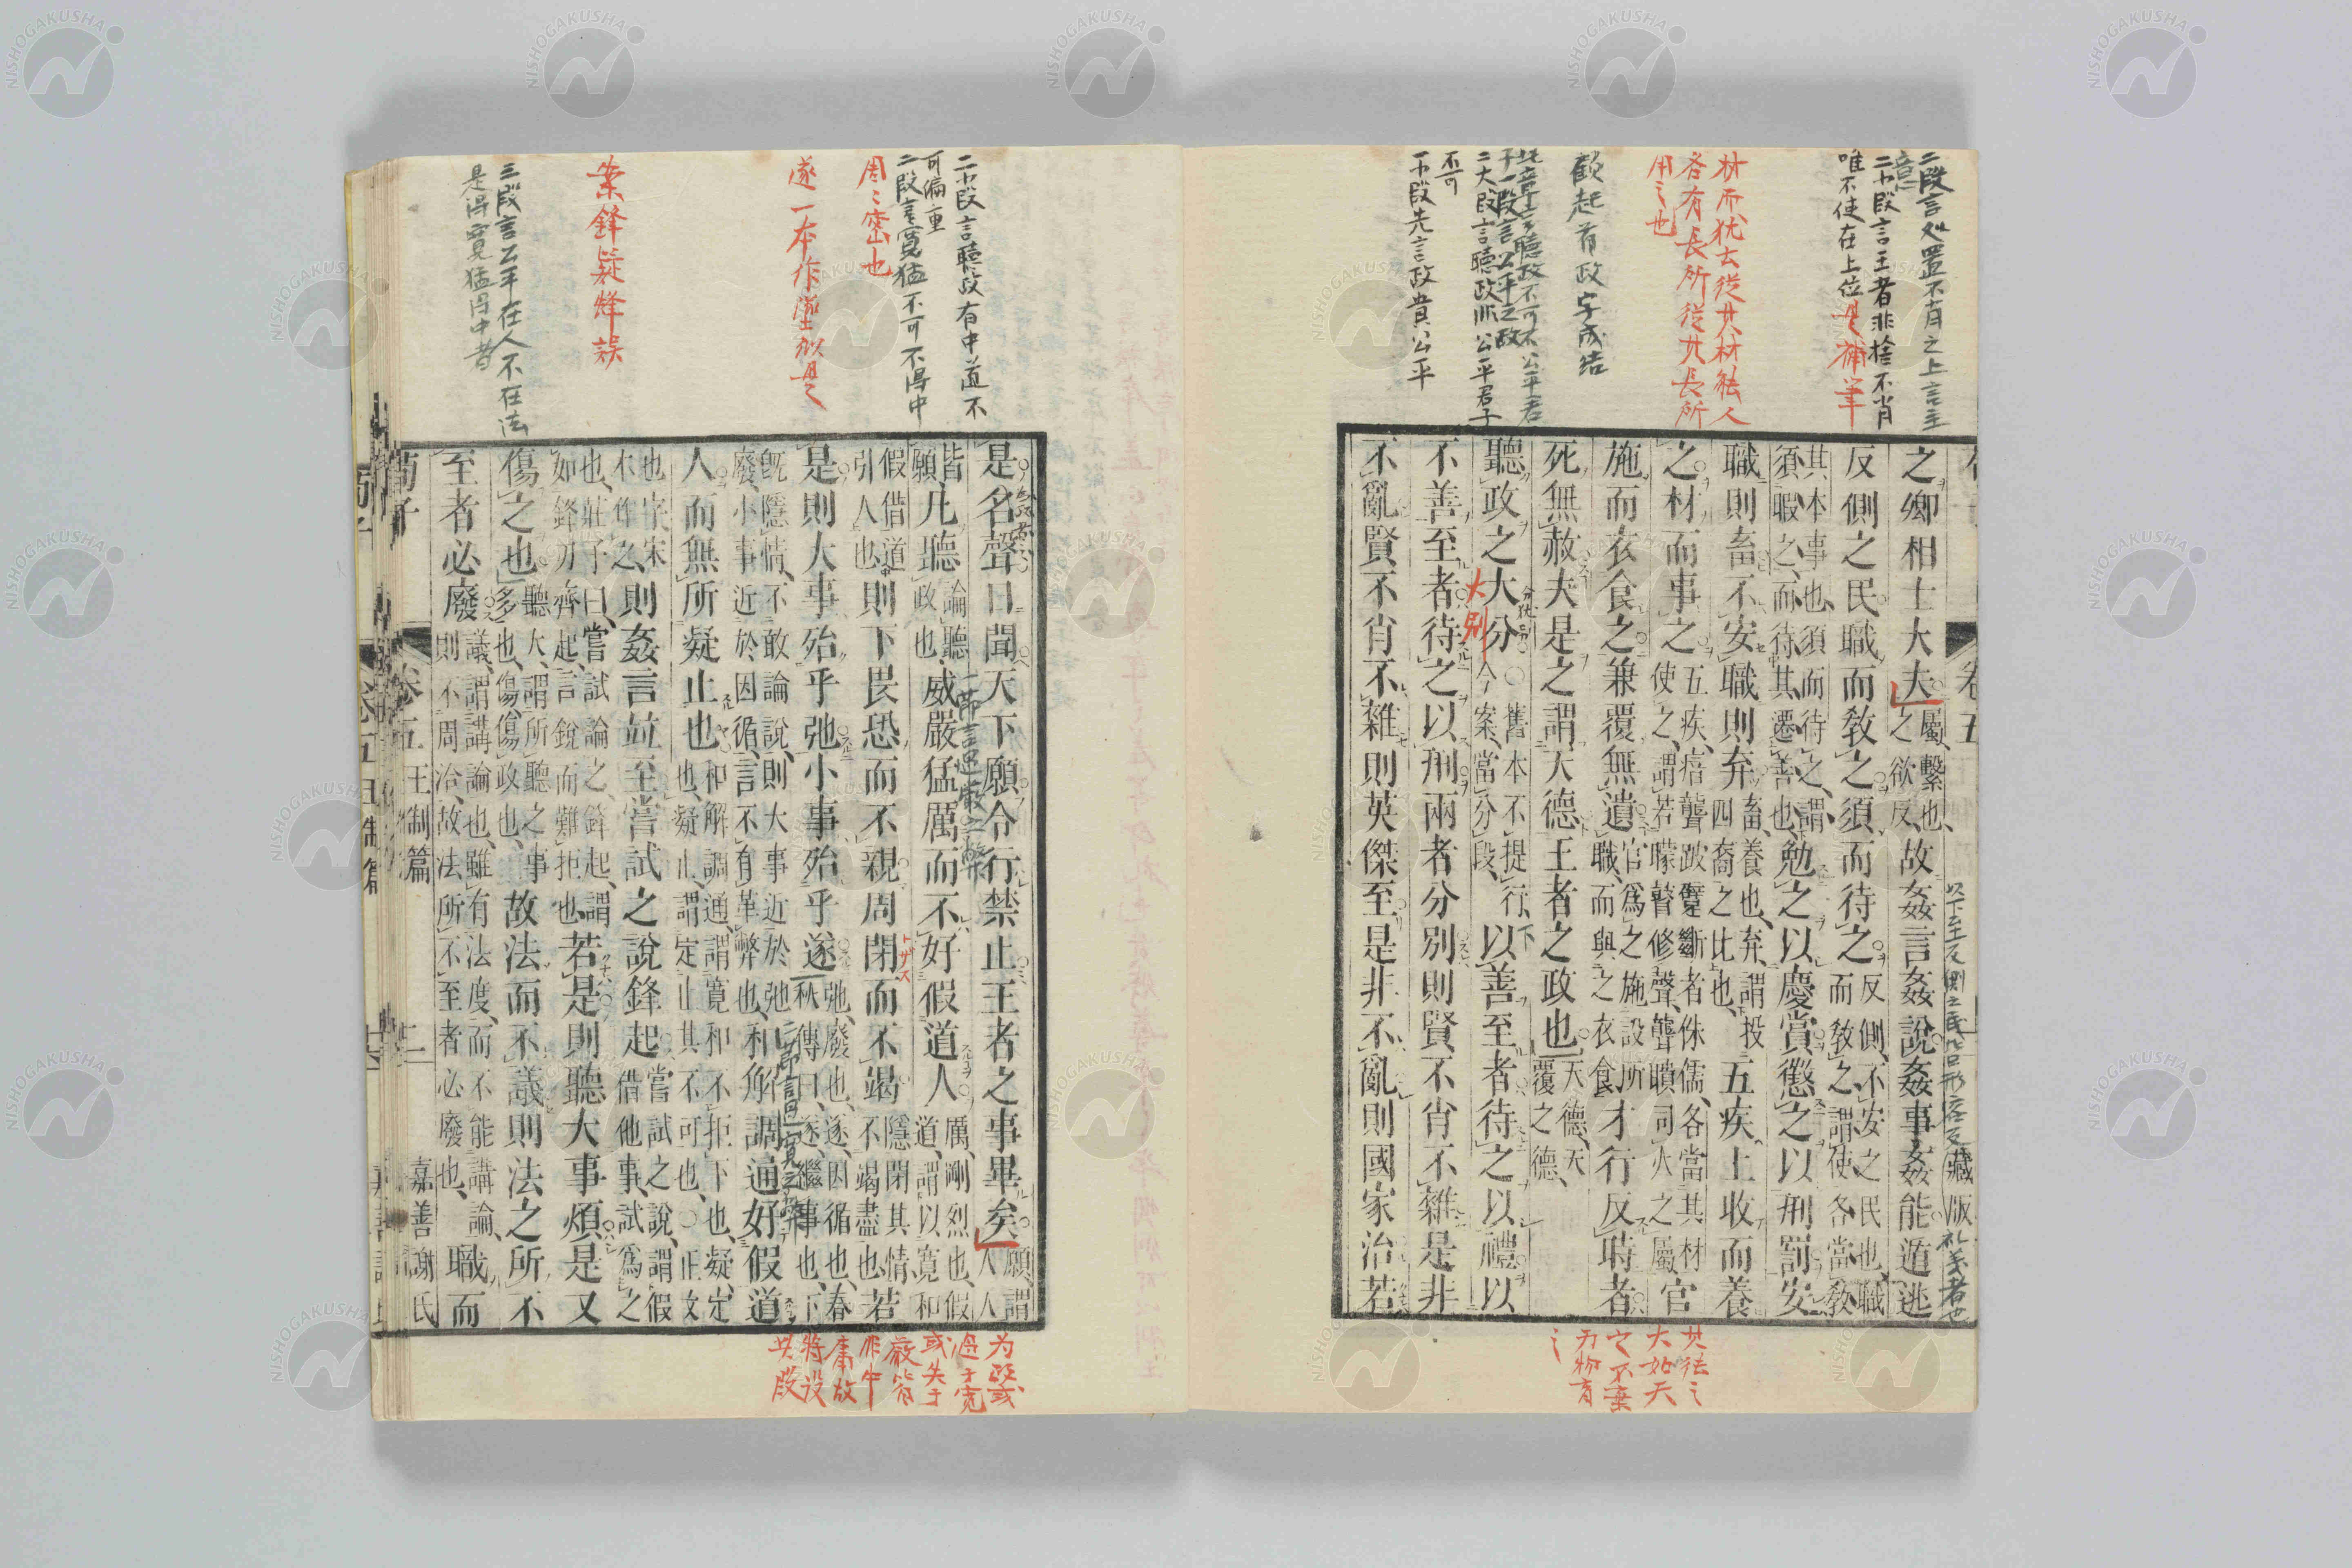 二段言処置不肖之上言王
意
二小段言王者非捨不肖
唯不使在上位是補筆
材而犹云從其材能人
各有長所從其長所
用之也
顧起首政字成結
此章言聽政不可不公平君
子一段言公平之政
二大段言聽政非公平君子
不可
一小段先言政貴公平
卷五
之卿相士大夫屬、繫也、之欲反、故姦言姦說姦事姦能遁逃
反側之民職而敎之須而待之反側、不安之民也、職而敎之、謂使各當敎
其本事也、須而待之、謂須暇之、而待其遷善也、勉之以慶賞懲之以刑罰安
職則畜不安職則弃畜、養也、弃、謂投四裔之比也、五疾上收而養
之材而事之五疾、瘖聾跛躄斷者侏儒、各當其材使之、謂若矇瞽修聲、聾聵司火之屬官
施而衣食之兼覆無遺官爲之施設所職、而與之衣食才行反時者
死無赦夫是之謂天德王者之政也天德、天覆之德、
聽政之大分○舊本不提行、今案、當分段、下以善至者待之以禮以
不善至者待之以刑兩者分別則賢不肖不雜是非
不亂賢不肖不雜則英傑至是非不亂則國家治若
藏版
大別
其法之
大如天
之不棄
万物育
二小段言聽政有中道不
可偏重
二段言寬猛不可不得中
周ミ密也
遂一本作墜似是
案鋒疑烽誤
三段言公平在人不在法
是得寬猛得中者
是名聲日聞天下願令行禁止王者之事畢矣願、謂人人
皆願凡聽論聽政也、威嚴猛厲而不好假道人厲、剛烈也、假道、謂以寬和
假借道引人也則下畏恐而不親周閉而不竭隱閉其情不竭盡也若
是則大事殆乎弛小事殆乎遂弛、廢也、遂、因循也、春秋傳曰、遂、繼事也、下
旣隱情、不敢論說、則大事近於弛廢、小事近於因循、言不有革弊也、和解調通好假道
人而無所疑止也和解調通、謂寬和不拒下也、疑、定也、疑止、謂定止其不可也、○正文
也宋本作之、則姦言竝至嘗試之說鋒起嘗試之說、謂假借他事、試爲之
也、莊子曰、嘗試論之、鋒起、謂如鋒刃齊起、言銳而難拒也、若是則聽大事煩是又
傷之也聽大、謂所聽之事多也、傷、傷政也、故法而不議則法之所不
至者必廢議、謂講論也、雖有法度、而不能講論、則不周洽、故法所不至者必廢也、職而
荀子
卷五
王制篇
二
嘉善謝氏
一節言過嚴之弊
二節言過寬之弊
トザス
为政或
過于寬
或失于
嚴皆
非中
庸故
特設
其段
NISHOGAKUSHA